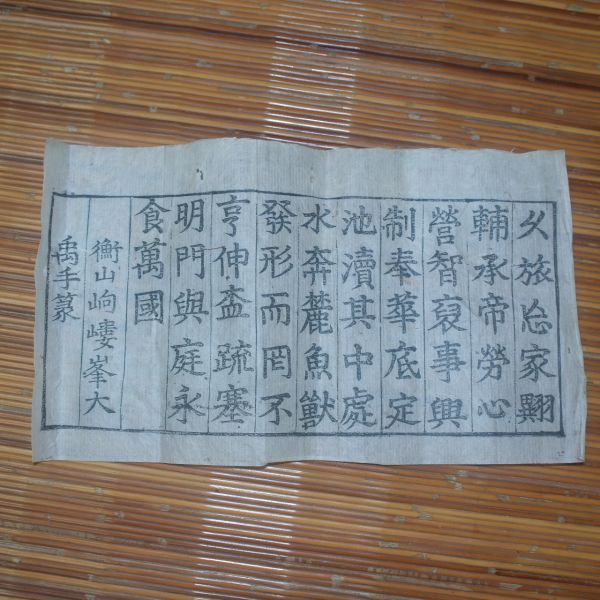 久旅忘家翾
輔承帝勞心
營智裒事興
制奉華底定
池瀆其中處
水奔麓魚獸
發形而罔不
亨伸盃疏塞
明門與庭永
食萬國
衡山岣嶁峯大
禹手篆